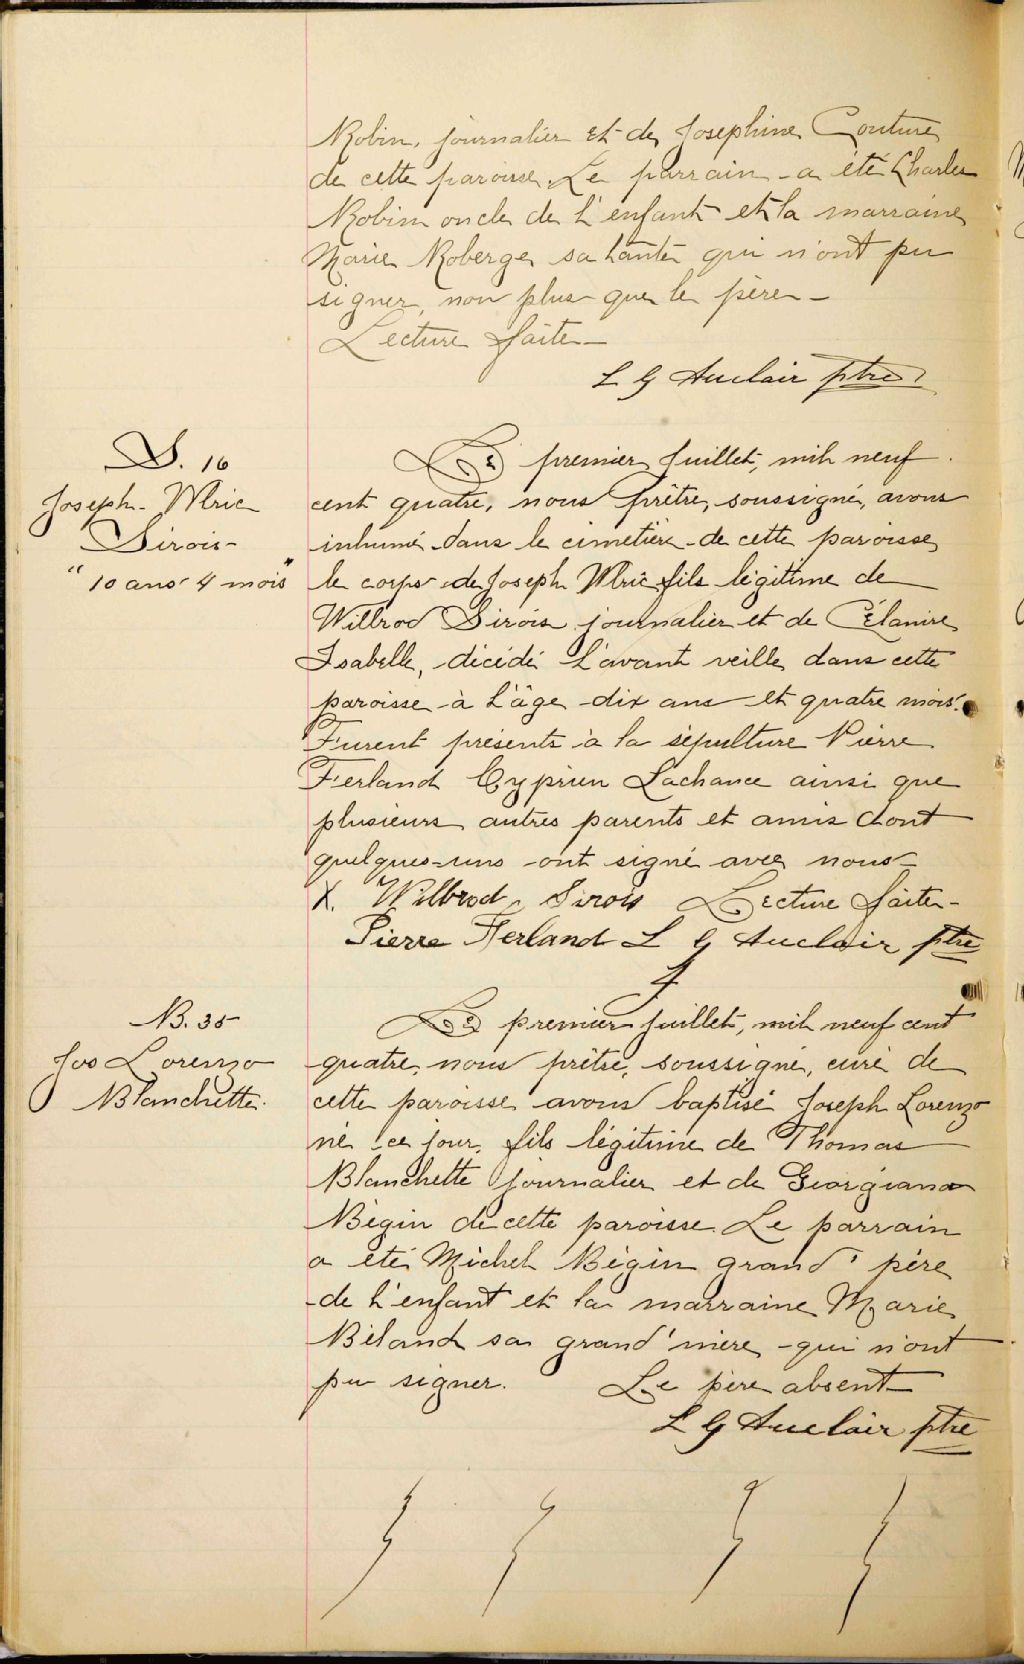 Robin, journalier et de Josephine Couture
de cette paroisse. Le parrain a été Charles
Robin oncle de l'enfant et la marraine
Marie Roberge sa tante qui n'ont pu
signer, non plus que le père -
Lecture faite -
L G Auclair ptre
S. 16
Joseph Ulric
Sirois -
"10 ans 4 mois"
Le premier Juillet, mil neuf
cent quatre, nous prêtre, soussigné, avons
inhumé dans le cimetière de cette paroisse
le corps de Joseph Ulric fils légitime de
Wilbrod Sirois journalier et de Célanire
Isabelle, décédé l'avant veille dans cette
paroisse à l'âge dix ans et quatre mois.
Furent présents à la sépulture Pierre
Ferland Cyprien Lachance ainsi que
plusieurs autres parents et amis dont
quelques-uns ont signé avec nous -
X. Wilbrod Sirois Lecture faite -
Pierre Ferland L G Auclair ptre
B. 35
Jos Lorenzo
Blanchette.
Le premier juillet, mil neuf cent
quatre, nous prêtre, soussigné, curé de
cette paroisse avons baptisé Joseph Lorenzo
né ce jour, fils légitime de Thomas
Blanchette journalier et de Georgiana
Bégin de cette paroisse. Le parrain
a été Michel Bégin grand'père
de l'enfant et la marraine Marie
Béland sa grand'mère qui n'ont
pu signer. Le père absent
L G Auclair ptre